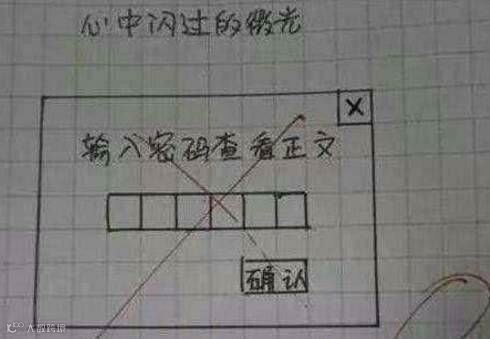 心中闪过的微光
X
输入密码查看正文
确认
大数跨境